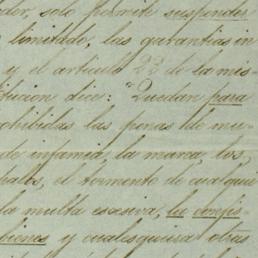 der, solo podrá suspender
limitado, las garantías in
y el artículo 23 de la mis
titucion dice: "Quedan para
rohibidas las penas de mu
de infamia, la marca, los
palos, el tormento de cualqui
la multa escesiva, la confis
bienes y cualesquiera otras